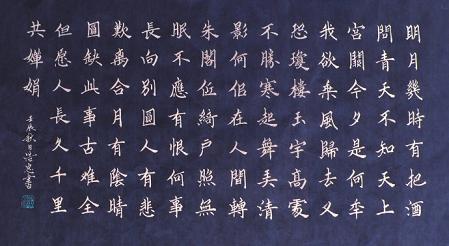 明月幾時有把酒
問青天不知天上
宮闕今夕是何年
我欲乘風歸去又
恐瓊樓玉宇高處
不勝寒起舞弄清
影何似在人間轉
朱閣低綺戶照無
眠不應有恨何事
長向別圓人有悲
歡離合月有陰晴
圓缺此事古難全
但愿人長久千里
共嬋娟
壬辰秋月書